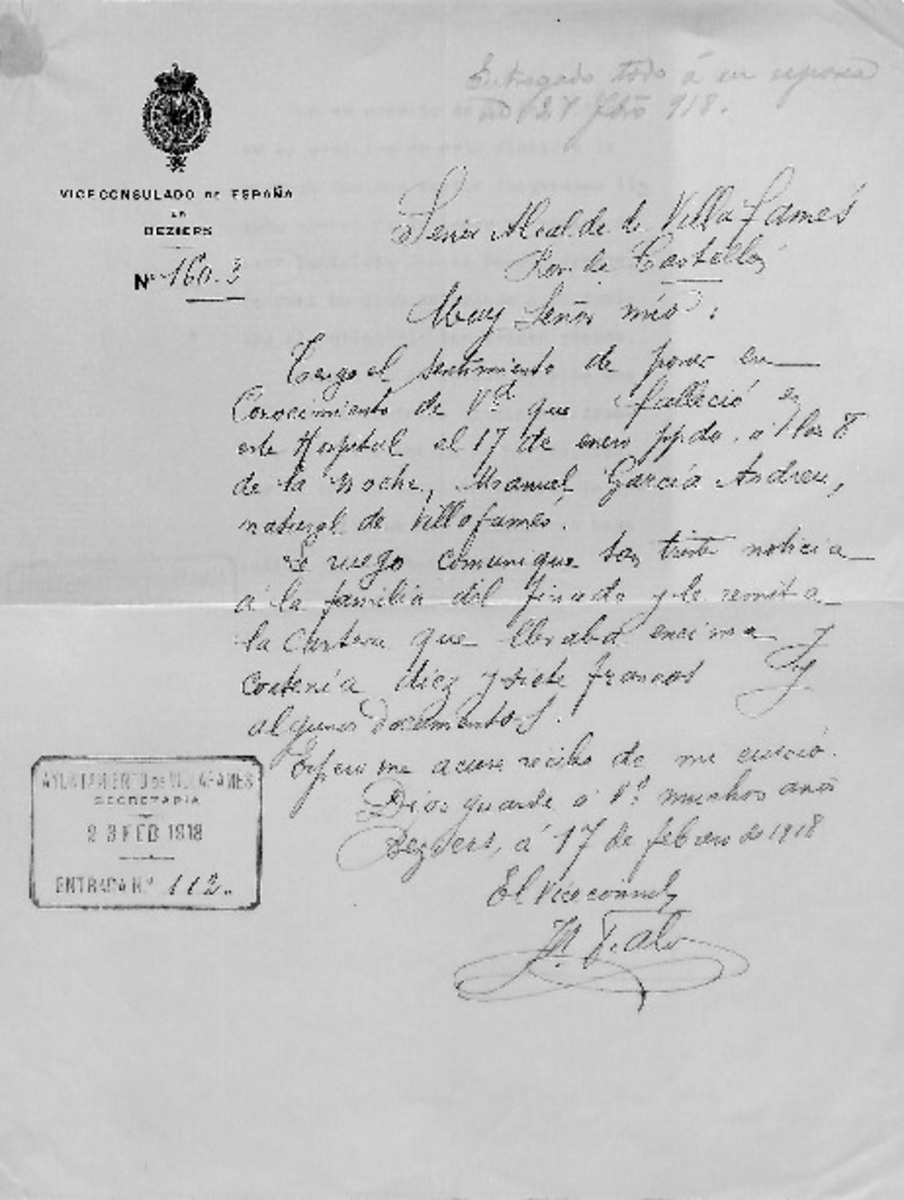 Entregado todo á su esposa
27 Fbro 918.
VICECONSULADO DE ESPAÑA
EN
BEZIERS
Nº 160-3
Señor Alcalde de Villafamés
Prov. de Castellón
Muy Señor mío:
Tengo el sentimiento de poner en
Conocimiento de Vd que falleció en
este Hospital el 17 de enero ppdo. á las 8
de la noche, Manuel García Andreu,
natural de Villafamés.
Le ruego comunique tan triste noticia
á la familia del finado y le remita
la cartera que llevaba encima y
contenía diez y siete francos y
algunos documentos.
Espero me acuse recibo de mi envío.
Dios guarde á Vd. muchos años
Beziers, á 17 de febrero de 1918
El Viceconsul
AYUNTAMIENTO DE VILLAFAMES
SECRETARIA
23 FEB 1918
ENTRADA N.º 112.